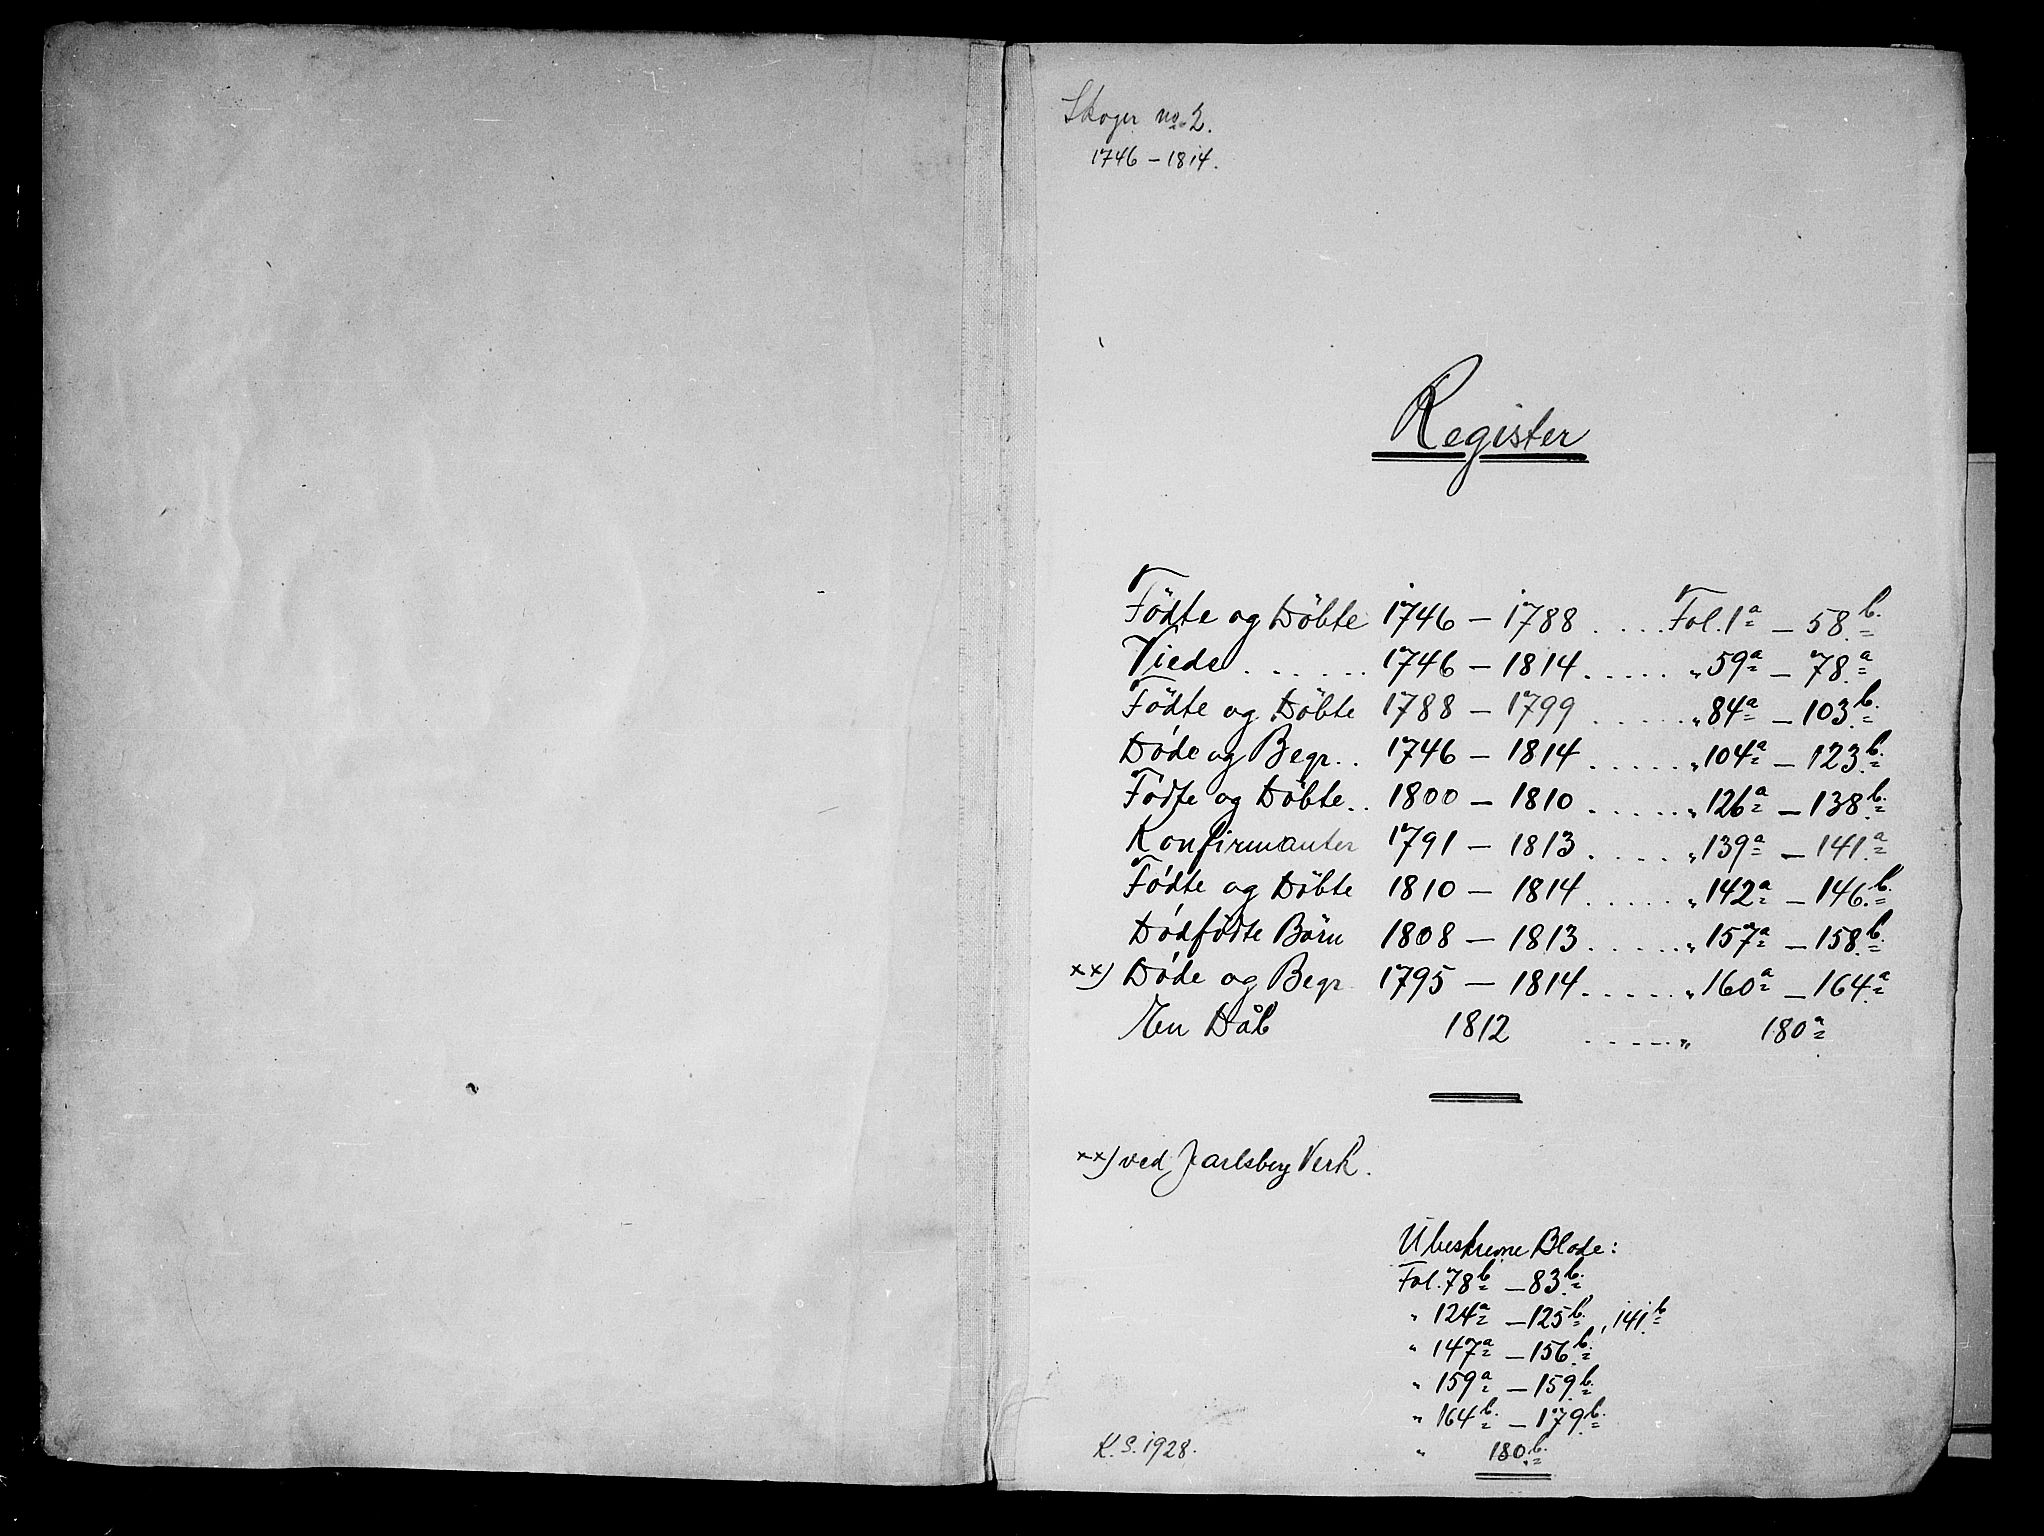 Skoger no 2.
1746 – 1814.
Register
Födte og Döbte 1746 – 1788 .... Fol. 1a – 58b.
Viede ...... 1746 – 1814 ..... " 59a – 78a
Födte og Döbte 1788 – 1799 ..... " 84a – 103b.
Døde og Begr. . 1746 – 1814 ..... " 104a – 123b.
Födte og Döbte .. 1800 – 1810 ..... " 126a – 138b.
Konfirmanter 1791 – 1813 .... " 139a – 141a
Födte og Döbte 1810 – 1814 ..... " 142a – 146b.
Dødfödte Börn 1808 – 1813 ..... " 157a – 158b.
xx) Døde og Begr 1795 – 1814 ..... " 160a – 164a
En Dåb 1812 ..... " 180a
xx) ved Jarlsberg Verk.
Ubeskrevne Blade:
Fol. 78b – 83b.
" 124a – 125b., 141b
" 147a – 156b.
" 159a – 159b.
" 164b. – 179b.
" 180b.
K.S. 1928.